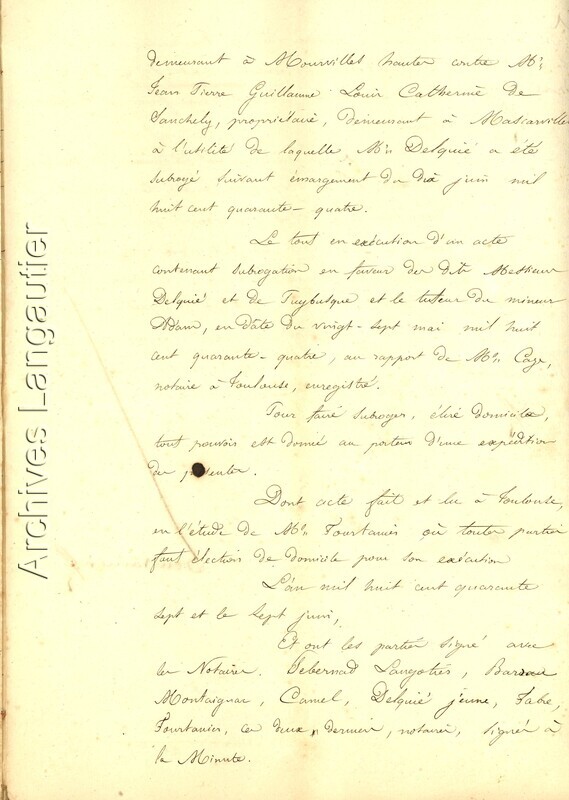 demeurant à Mourvilles hautes contre Mr.
Jean Pierre Guillaume Louis Catherine De
Sanchely, propriétaire, demeurant à
à l'utilité de laquelle Mr. Delquié a été
subrogé suivant émargement du dix juin mil
huit cent quarante-quatre.
Le tout en exécution d'un acte
contenant subrogation en faveur des dits Messieurs
Delquié et de Puybusque et le tuteur du mineur
Adam, en date du vingt-sept mai mil huit
cent quarante-quatre, au rapport de Me. Caze,
notaire à Toulouse, enregistré.
Pour faire subroger, élire domicile,
tout pouvoir est donné au porteur d'une expédition
des présentes.
Dont acte fait et lu à Toulouse,
en l'étude de Me. Fourtanier où toutes parties
font élection de domicile pour son exécution
L'an mil huit cent quarante
sept et le sept juin,
Et ont les parties signé avec
les Notaires. Barrau
Montaignac, Camel, Delquié jeune, Fabre,
Fourtanier, ces deux derniers, notaires, signés à
la Minute.
Archives Langautier